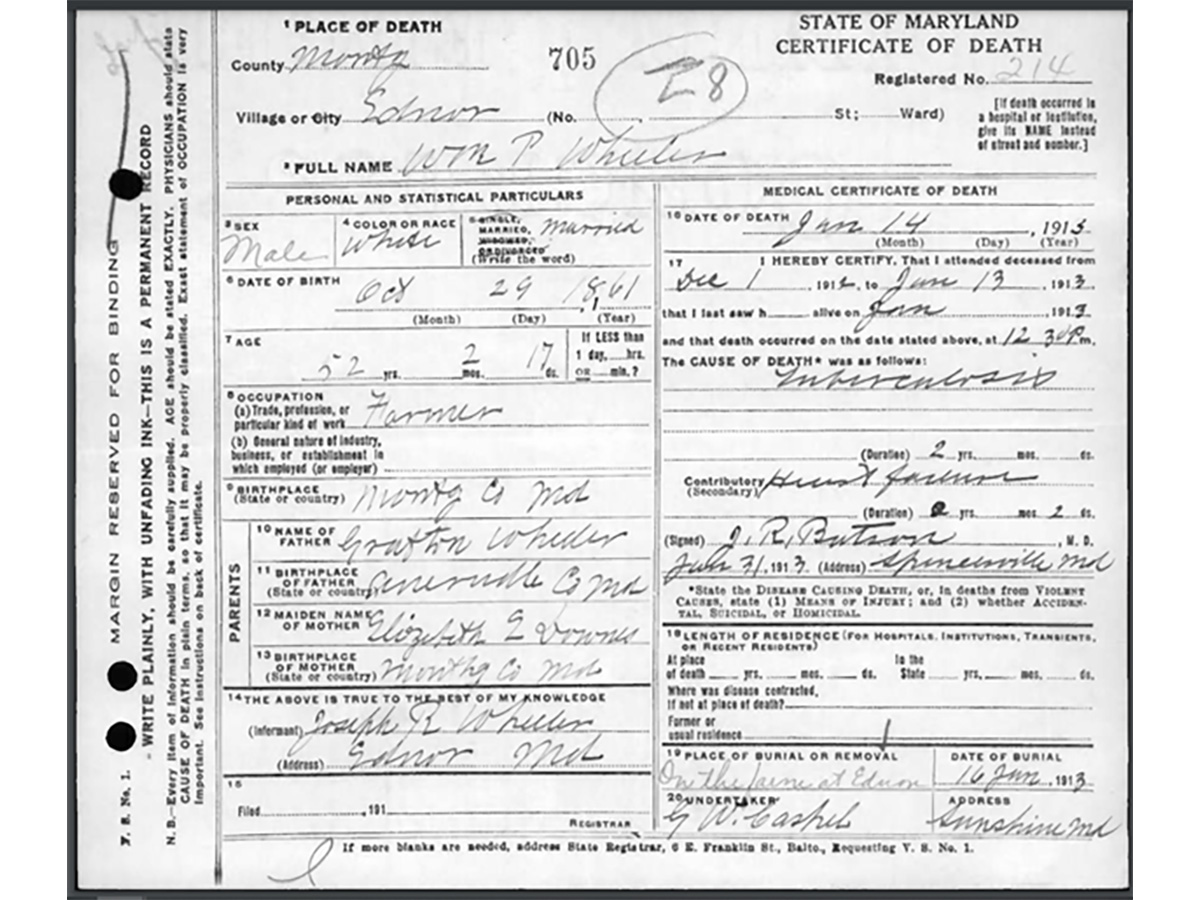 ¹ PLACE OF DEATH
County Montg
705
28
STATE OF MARYLAND
CERTIFICATE OF DEATH
Registered No. 214
Village or City Ednor (No. , St; Ward)
[If death occurred in a hospital or institution, give its NAME instead of street and number.]
² FULL NAME Wm P Wheeler
PERSONAL AND STATISTICAL PARTICULARS
³ SEX
Male
⁴ COLOR OR RACE
White
⁵ SINGLE, MARRIED, WIDOWED, OR DIVORCED
(Write the word)
Married
⁶ DATE OF BIRTH
Oct 29 1861
(Month) (Day) (Year)
⁷ AGE
52 yrs. 2 mos. 17 ds.
If LESS than
1 day, hrs.
OR min.?
⁸ OCCUPATION
(a) Trade, profession, or
particular kind of work Farmer
(b) General nature of industry,
business, or establishment in
which employed (or employer)
⁹ BIRTHPLACE
(State or country) Montg Co Md
PARENTS
¹⁰ NAME OF
FATHER Grafton Wheeler
¹¹ BIRTHPLACE
OF FATHER
(State or country) Co Md
¹² MAIDEN NAME
OF MOTHER Elizabeth E Downes
¹³ BIRTHPLACE
OF MOTHER
(State or country) Montg Co Md
¹⁴ THE ABOVE IS TRUE TO THE BEST OF MY KNOWLEDGE
(Informant) Joseph R Wheeler
(Address) Ednor Md
¹⁵
Filed , 191
REGISTRAR
MEDICAL CERTIFICATE OF DEATH
¹⁶ DATE OF DEATH Jan 14 , 1913
(Month) (Day) (Year)
¹⁷ I HEREBY CERTIFY, That I attended deceased from
Dec 1 1912, to Jan 13 1913
that I last saw h alive on Jan 1913
and that death occurred on the date stated above, at 12 30 P m.
The CAUSE OF DEATH* was as follows:
Tuberculosis
(Duration) 2 yrs. mos. ds.
Contributory Heart failure
(Secondary)
(Duration) yrs. mos. 2 ds.
(Signed) J. R. Batson , M. D.
31, 1913 (Address) Spencerville Md
*State the DISEASE CAUSING DEATH, or, in deaths from VIOLENT
CAUSES, state (1) MEANS OF INJURY; and (2) whether ACCIDEN-
TAL, SUICIDAL, or HOMICIDAL.
¹⁸ LENGTH OF RESIDENCE (FOR HOSPITALS, INSTITUTIONS, TRANSIENTS,
OR RECENT RESIDENTS)
At place In the
of death yrs. mos. ds. State yrs. mos. ds.
Where was disease contracted,
if not at place of death?
Former or
usual residence
¹⁹ PLACE OF BURIAL OR REMOVAL
On the farm at Ednor
DATE OF BURIAL
16 Jan, 1913
²⁰ UNDERTAKER
G W. Cashel
ADDRESS
Sunshine Md
If more blanks are needed, address State Registrar, 6 E. Franklin St., Balto., Requesting V. S. No. 1.
V. S. No. 1.
MARGIN RESERVED FOR BINDING
WRITE PLAINLY, WITH UNFADING INK—THIS IS A PERMANENT RECORD
N. B.—Every item of information should be carefully supplied. AGE should be stated EXACTLY. PHYSICIANS should state
CAUSE OF DEATH in plain terms, so that it may be properly classified. Exact statement of OCCUPATION is very
important. See instructions on back of certificate.